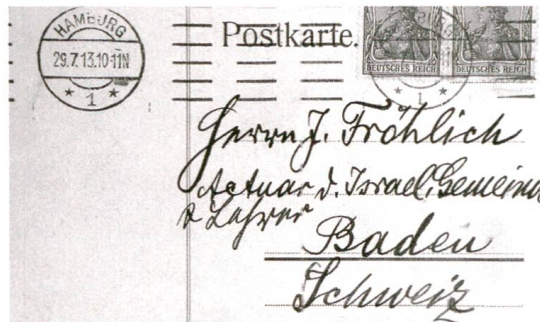 HAMBURG
29.7.13.10-11N
* 1 *
Postkarte.
DEUTSCHES REICH DEUTSCHES REICH
Herrn J. Fröhlich
Actuar d. Israel. Gemeinde
& Lehrer
Baden
Schweiz